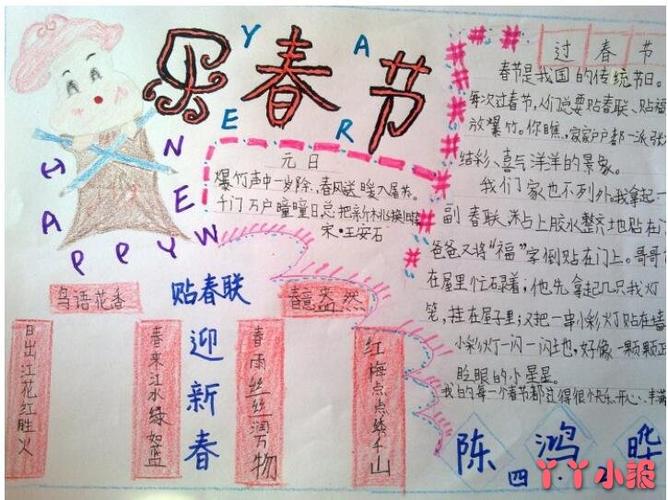 乐春节
HAPPY NEW
YEAR
元日
爆竹声中一岁除,春风送暖入屠苏。
千门万户曈曈日,总把新桃换旧
宋·王安石
过春节
春节是我国的传统节日。
每次过春节,人们总要贴春联、贴福
放爆竹。你瞧,家家户户都一派张
结彩、喜气洋洋的景象。
我们家也不列外,我拿起一
副春联,粘上胶水整齐地贴在门
爸爸又将“福”字倒贴在门上。哥哥
在屋里忙碌着,他先拿起几只我灯
笼,挂在屋子里;又把一串小彩灯贴在墙
小彩灯一闪一闪地,好像一颗颗正
眨眼的小星星。
我的每一个春节都过得很快乐、开心、丰满
鸟语花香
贴春联
春意盎然
日出江花红胜火
春来江水绿如蓝
迎新春
春雨丝丝润万物
红梅点点绣千山
陈鸿晔
四
丫丫小报